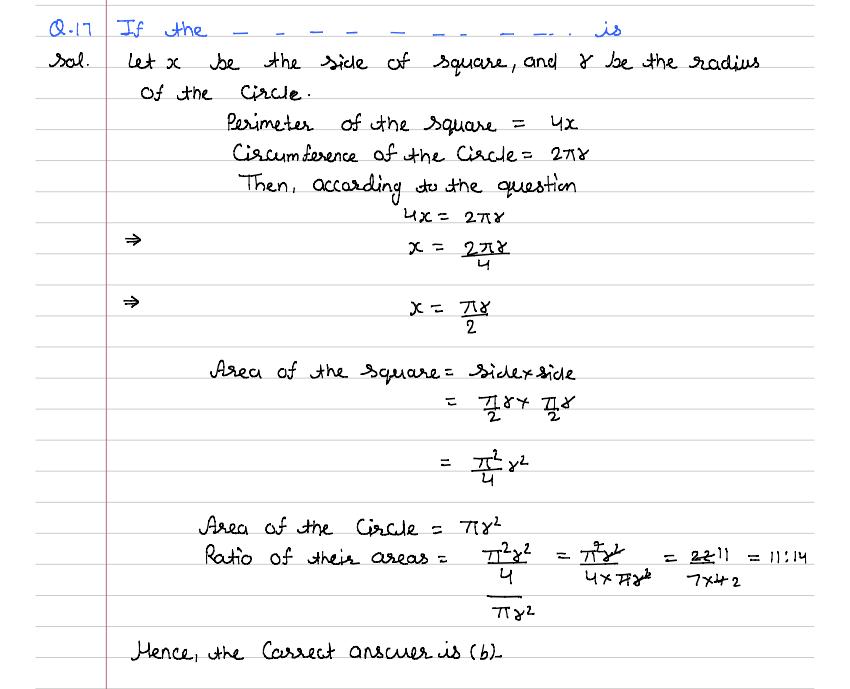 Q.17 If the _ _ _ _ _ _ _ _ _ _ . . is
Sol. Let x be the side of square, and r be the radius
of the Circle.
Perimeter of the square = 4x
Circumference of the Circle = 2πr
Then, according to the question
4x = 2πr
⇒ x = 2πr/4
⇒ x = πr/2
Area of the square = side × side
= π/2 r × π/2 r
= π²/4 r²
Area of the Circle = πr²
Ratio of their areas = (π²r²/4)/πr² = π²r²/4×πr² = 22 11/7×4 2 = 11:14
Hence, the Correct answer is (b).